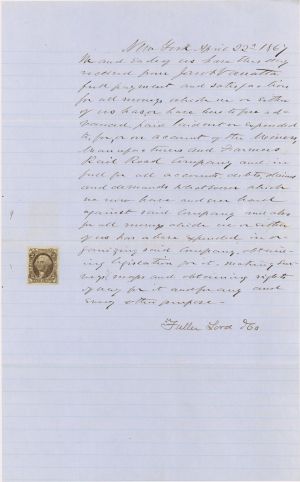 New York April 22d 1867
We and each of us have this day
received from Jacob Vanatta
full payment and satisfaction
for all moneys which we or either
of us has or have heretofore ad-
vanced, paid, laid out or expended
to, for or on account of the Miners,
Manufacturers and Farmers
Rail Road Company and in
full for all accounts, debts, claims
and demands whatsoever which
we now have and ever had
against said Company and also
for all moneys which we or either
of us has or have expended in or-
ganizing said Company, obtain-
ing legislation for it, making sur-
veys, maps and obtaining rights
of way for it and for any and
every other purpose—
Fuller Lord & Co